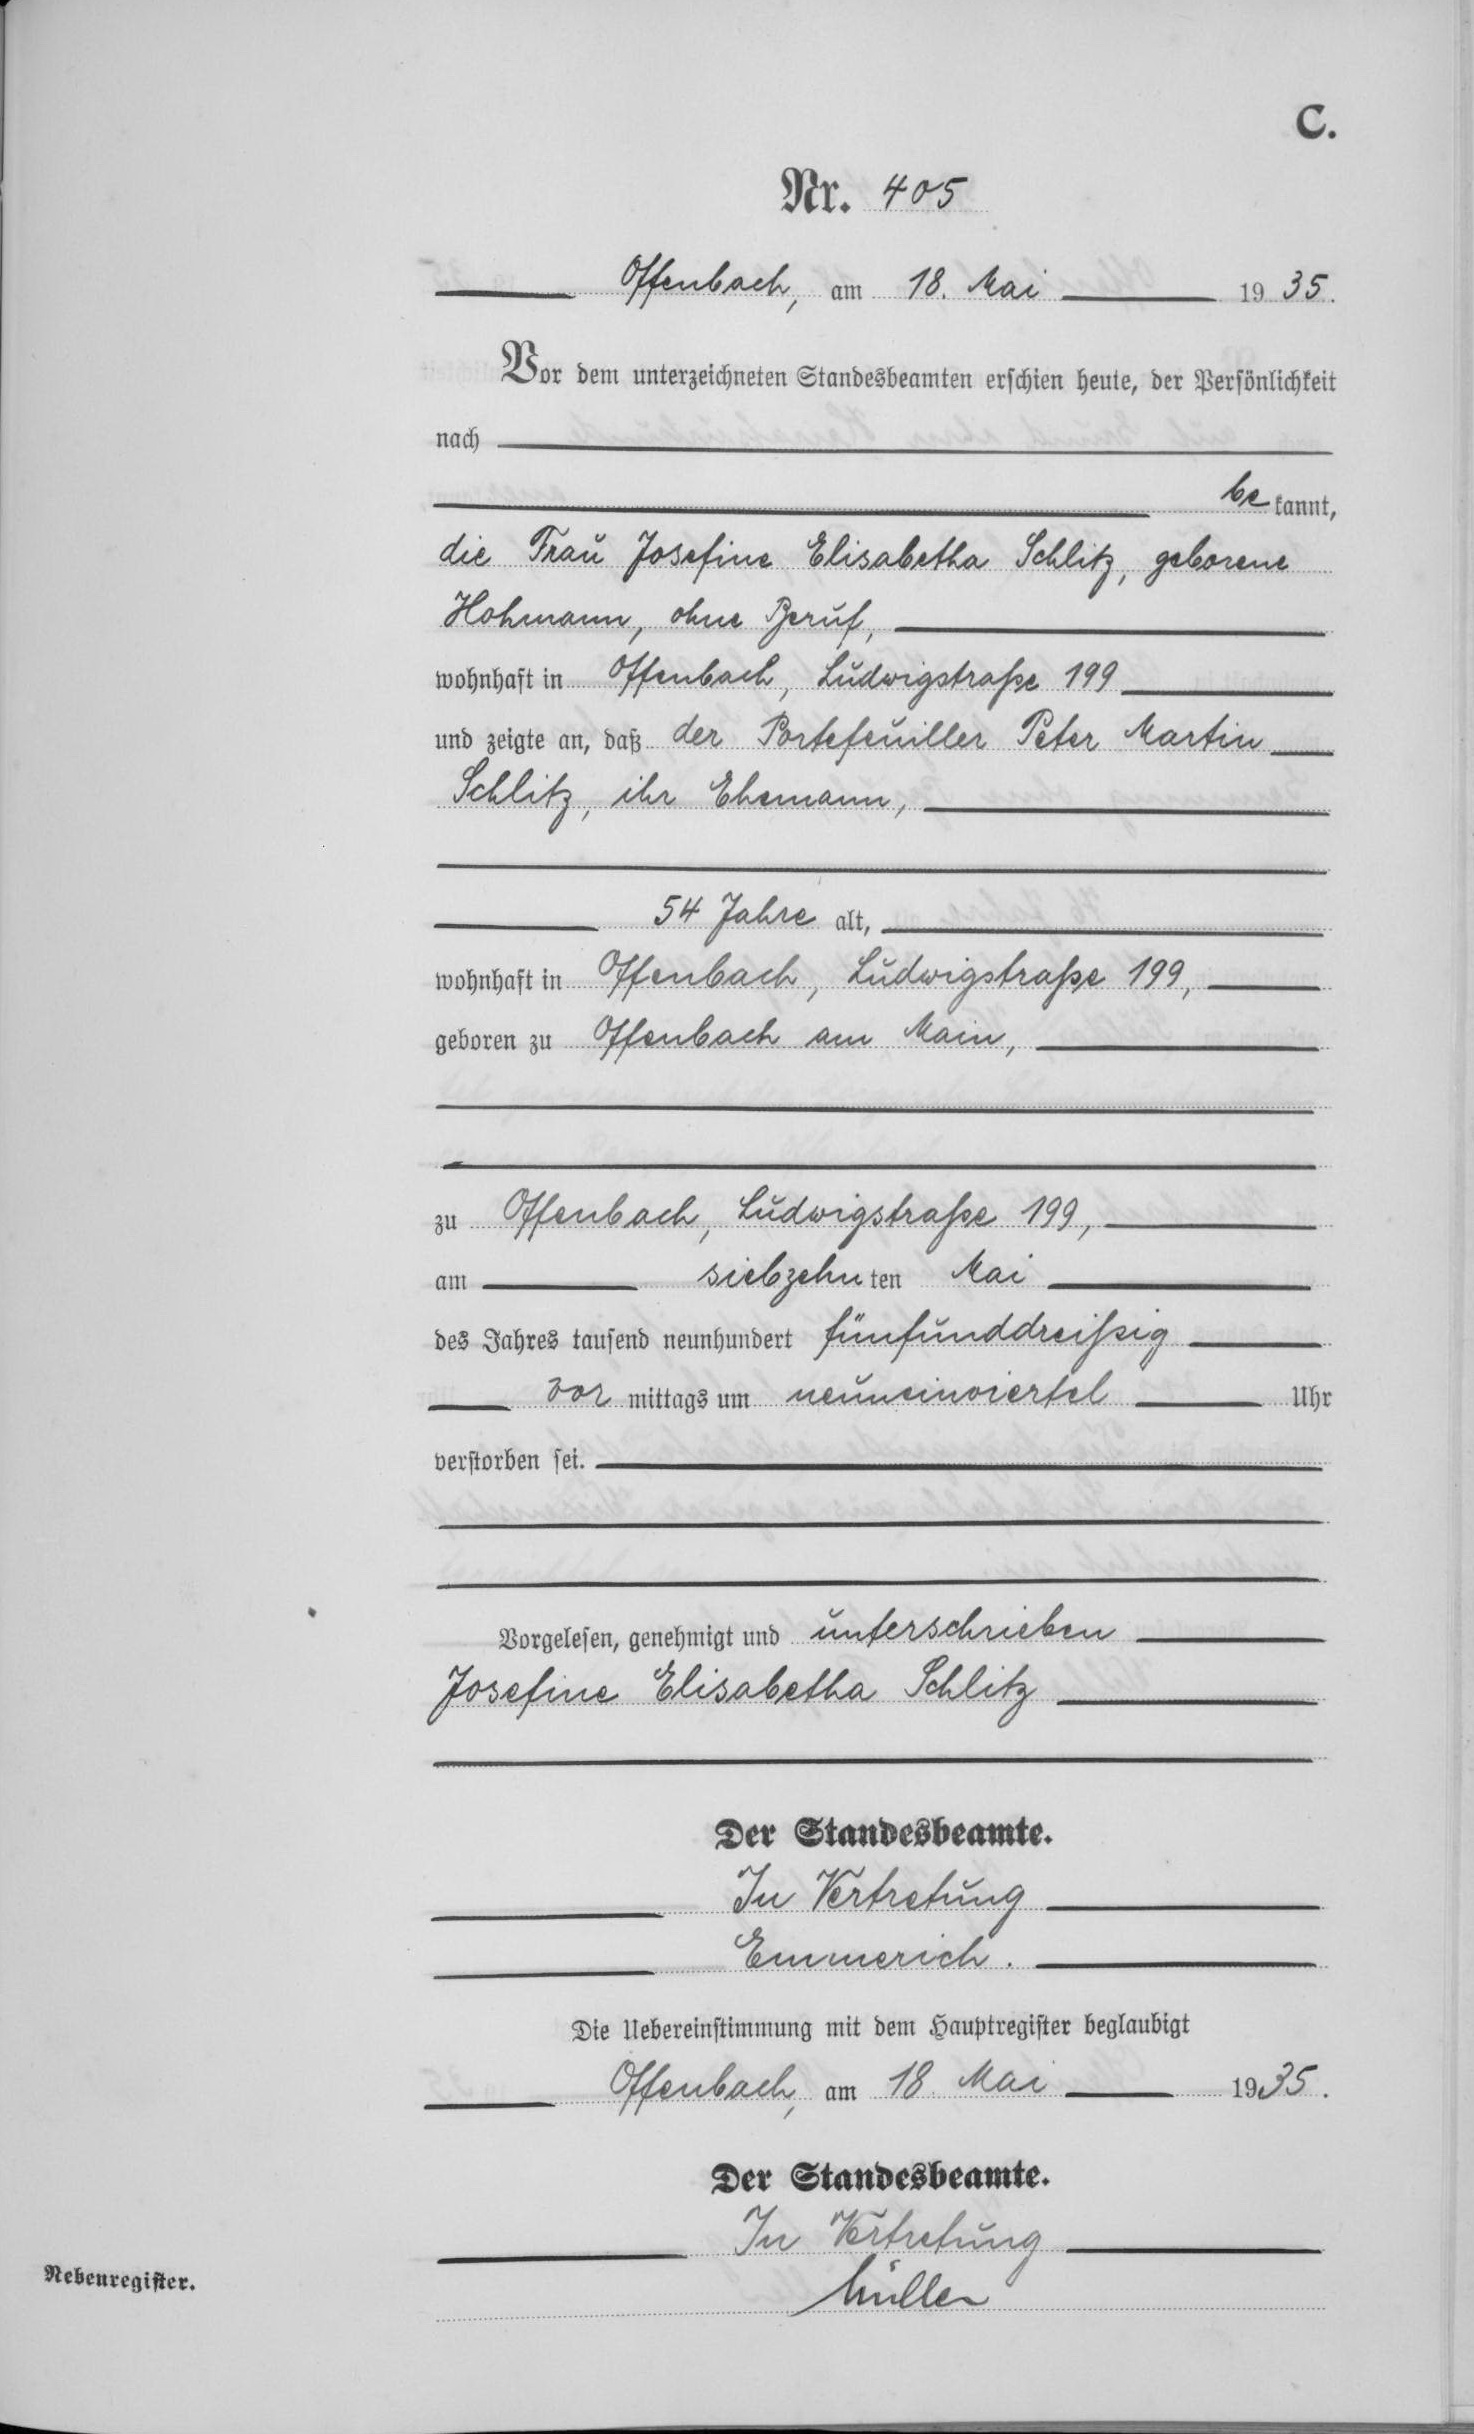 C.
Nr. 405
Offenbach, am 18. Mai 1935.
Vor dem unterzeichneten Standesbeamten erschien heute, der Persönlichkeit
nach
be kannt,
die Frau Josefine Elisabetha Schlitz, geborene
Hohmann, ohne Beruf,
wohnhaft in Offenbach, Ludwigstraße 199
und zeigte an, daß der Portefeuiller Peter Martin
Schlitz, ihr Ehemann,
54 Jahre alt,
wohnhaft in Offenbach, Ludwigstraße 199,
geboren zu Offenbach am Main,
zu Offenbach, Ludwigstraße 199,
am siebzehnten Mai
des Jahres tausend neunhundert fünfunddreißig
vor mittags um neuneinviertel Uhr
verstorben sei.
Vorgelesen, genehmigt und unterschrieben
Josefine Elisabetha Schlitz
Der Standesbeamte.
In Vertretung
Emmerich.
Die Uebereinstimmung mit dem Hauptregister beglaubigt
Offenbach, am 18. Mai 1935.
Der Standesbeamte.
In Vertretung
Müller
Nebenregister.